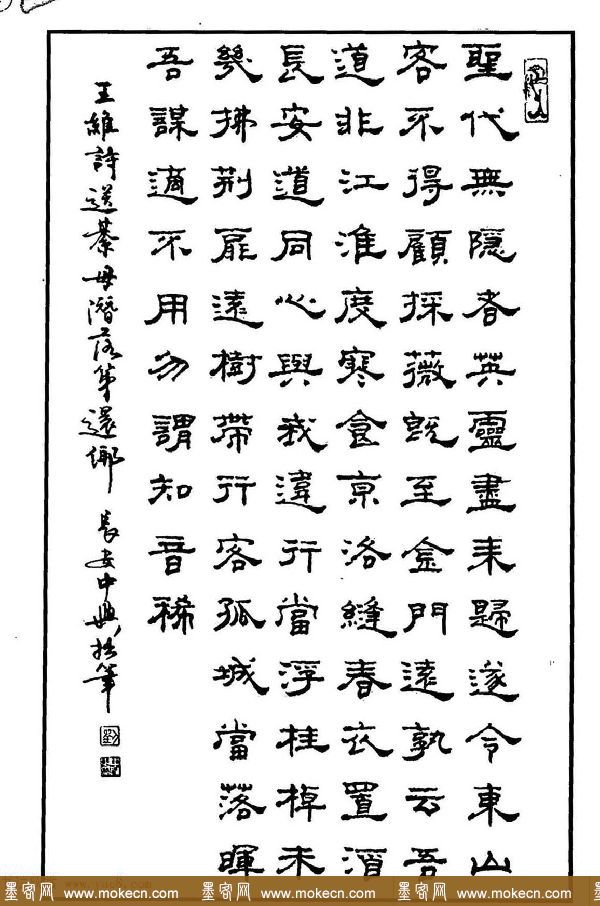 聖代無隱者英靈盡來歸遂令東山
客不得顧採薇既至金門遠孰云吾
道非江淮度寒食京洛縫春衣置酒
長安道同心與我違行當浮桂棹未
幾拂荆扉遠樹帶行客孤城當落暉
吾謀適不用勿謂知音稀
王維詩送綦毋潛落第還鄉 長安中興拙筆
墨客网 www.mokecn.com 墨客网 www.mokecn.com 墨客网 www.mokecn.com